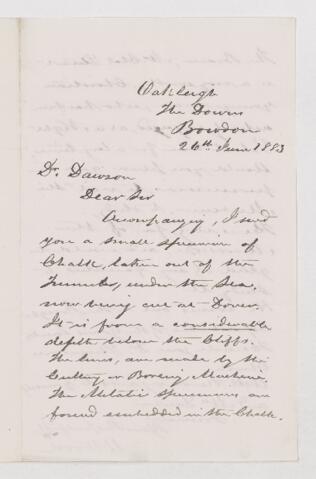 Oakleigh
The Downs
Bowdon
26th June 1883
Dr. Dawson
Dear Sir
Accompanying, I send
you a small specimen of
Chalk, taken out of the
Tunnel, under the Sea,
now being cut at Dover.
It is from a considerable
depth below the Cliffs.
The lines, are made by the
Cutting or Boring Machine.
The Metalic specimens are
found embedded in the Chalk.